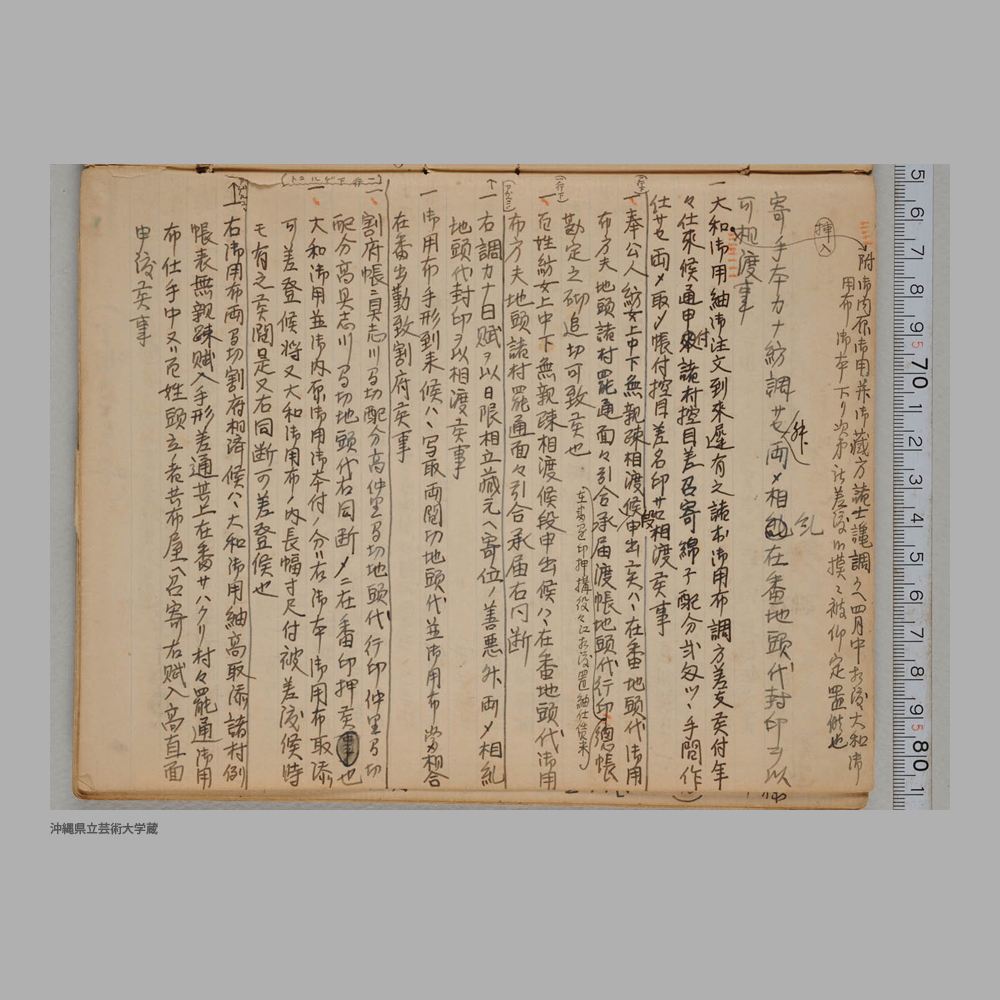 附 御内原御用并御蔵方諸士調 四月中 大和御
用布 御本下り次第 被仰定置候也
挿入
寄手本カナ紡調サセ両〆相糺在番地頭代封印ヲ以
可相渡事
一大和御用紬御注文到来遅有之諸村御用布調方差支候付年
々仕来候通申付諸村控目差召寄綿子配分弐匁ツヽ手間作
仕サセ両〆取〆帳付控目差名印サセ相渡候事
一奉公人紡女上中下無親疎相渡候段申出候ハヽ在番地頭代御用
布方夫地頭諸村罷通面々引合承届渡帳地頭代行印総帳
勘定之砌追切可致候也
一百姓紡女上中下無親疎相渡候段申出候ハヽ在番地頭代御用
布方夫地頭諸村罷通面々引合承届右同断
一右調カナ日賦ヲ以日限相立蔵元ヘ寄位ノ善悪舛両〆相糺
地頭代封印ヲ以相渡候事
一御用布手形到来候ハヽ写取両間切地頭代並御用布当相合
在番出勤致割府候事
一割府帳ニ具志川間切配分高仲里間切地頭代行印仲里間切
配分高具志川間切地頭代右同断〆ニ在番印押候也
一大和御用並御内原御用御本付ノ分ハ右御本御用布取添
可差登候将又大和御用布ノ内長幅寸尺付被差渡候時
モ有之候間是又右同断可差登候也
一右御用布両間切割府相済候ハヽ大和御用紬高取添諸村例
帳表無親疎賦入手形差通其上在番サハクリ村々罷通御用
布仕手中又ハ百姓頭立者共布屋ヘ召寄右賦入高直面
申渡候事
沖縄県立芸術大学蔵